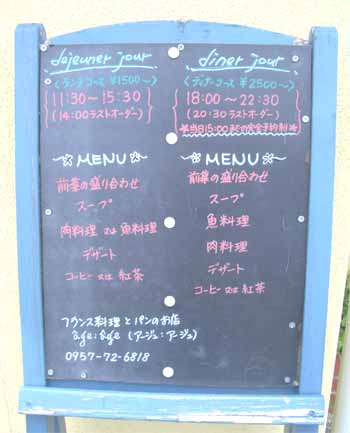 dejeuner jour
(ランチコース ¥1500~)
11:30~15:30
(14:00ラストオーダー)
~MENU~
前菜の盛り合わせ
スープ
肉料理 又は 魚料理
デザート
コーヒー 又は 紅茶
diner jour
(ディナーコース ¥2500~)
18:00~22:30
(20:30ラストオーダー)
※当日15:00までの完全予約制
~MENU~
前菜の盛り合わせ
スープ
魚料理
肉料理
デザート
コーヒー 又は 紅茶
フランス料理とパンのお店
âge:âge (アージュ:アージュ)
0957-72-6818